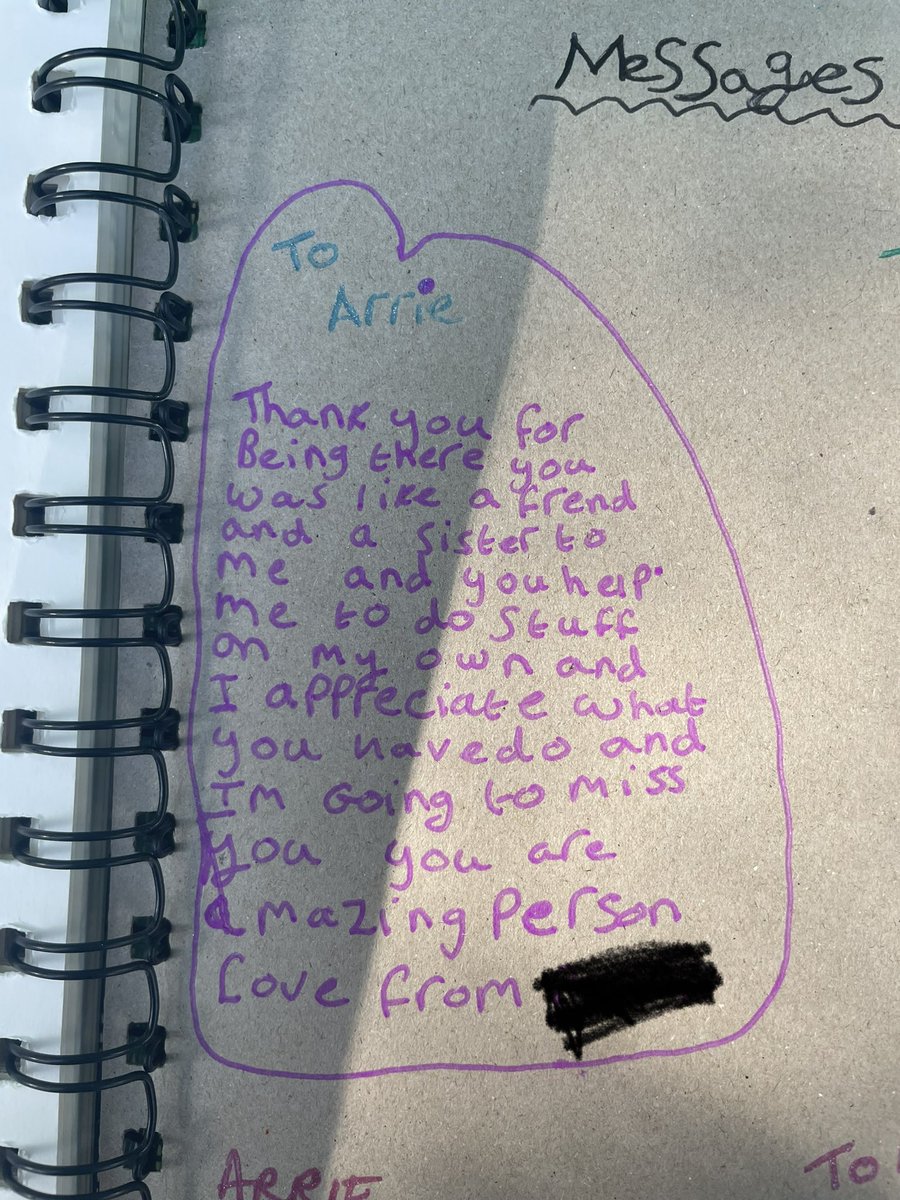 Messages
To
Arrie
Thank you for
Being there you
was like a frend
and a sister to
me and you help
me to do stuff
on my own and
I appreciate what
you have do and
I'm Going to miss
you you are
amazing Person
Love from
ARRIE
To